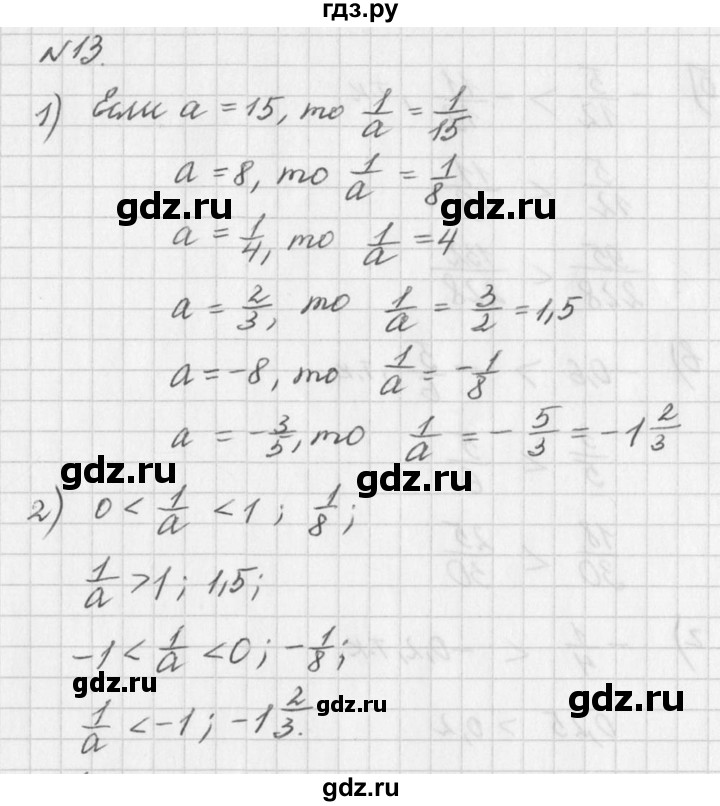 гдз.ру
№13.
1) Если a = 15, то 1/a = 1/15
a = 8, то 1/a = 1/8
gdz.ru gdz.ru
a = 1/4, то 1/a = 4
a = 2/3, то 1/a = 3/2 = 1,5
a = -8, то 1/a = -1/8
a = -3/5, то 1/a = -5/3 = -1 2/3
gdz.ru gdz.ru
2) 0 < 1/a < 1; 1/8;
1/a > 1; 1,5;
-1 < 1/a < 0; -1/8;
gdz.ru gdz.ru gdz.ru
1/a < -1; -1 2/3.
gdz.ru